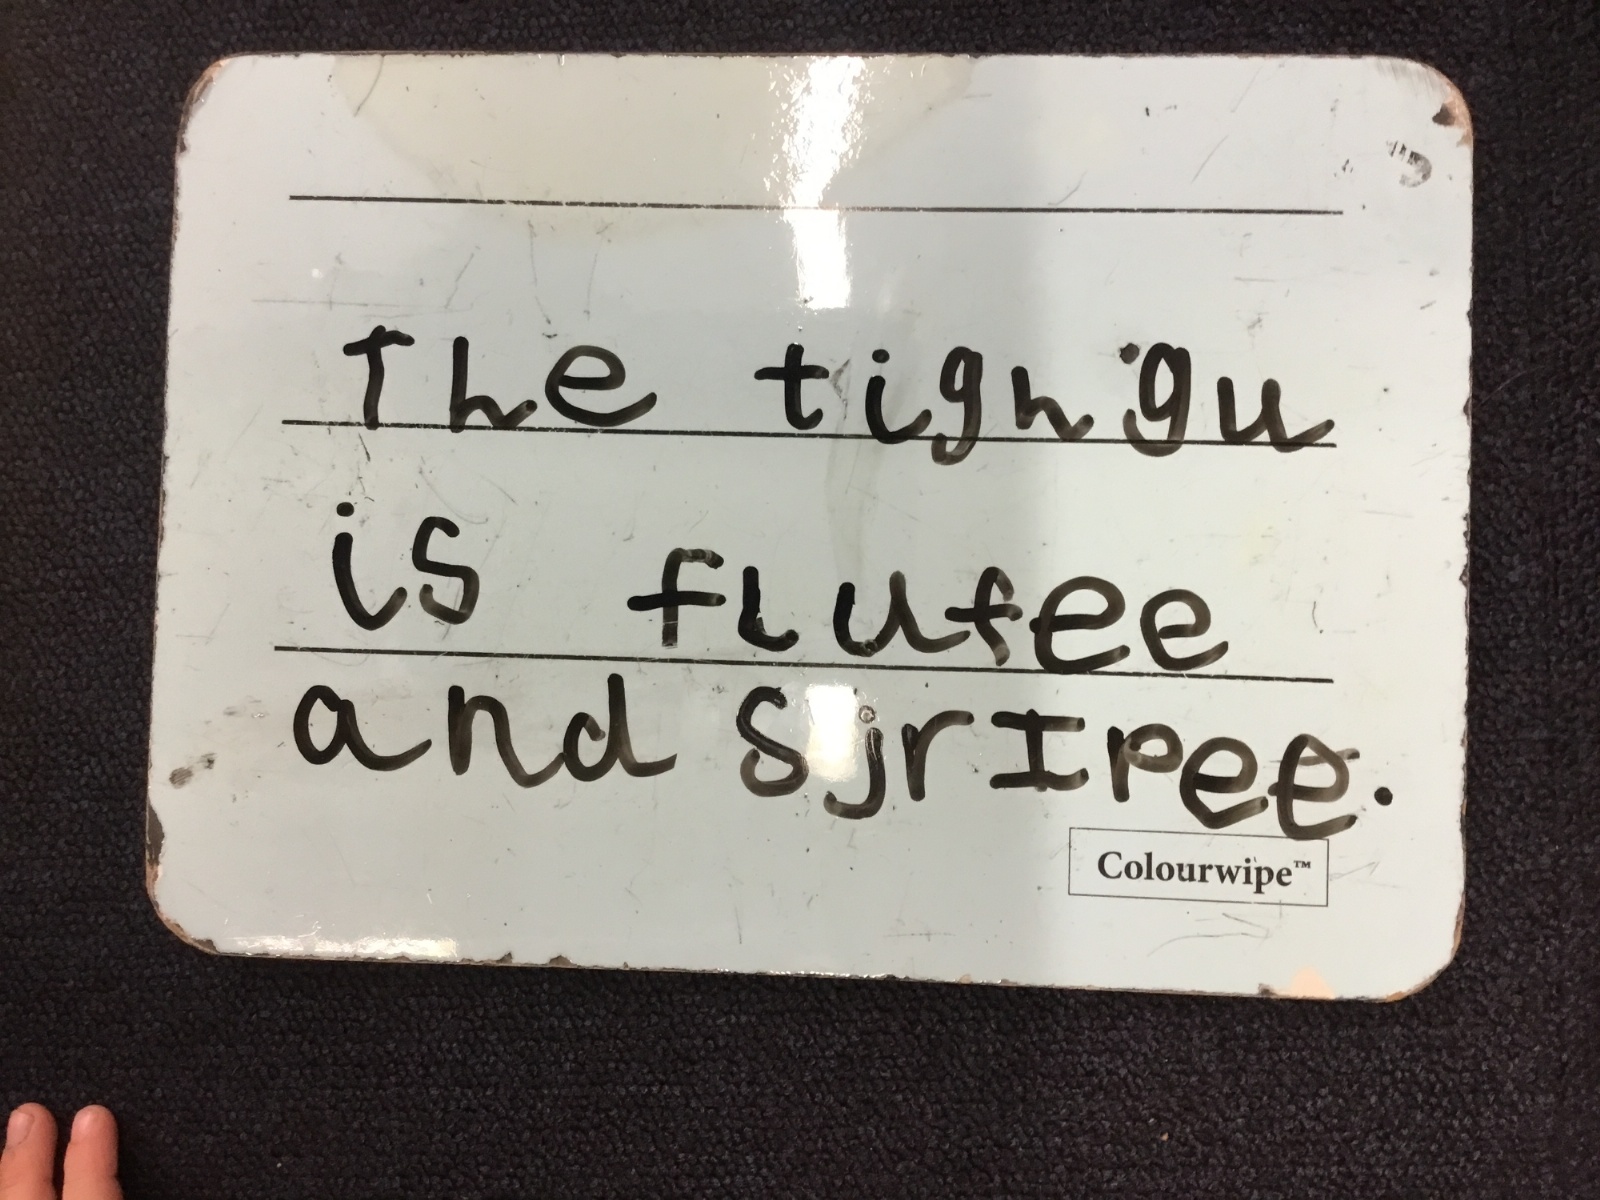 The tighgu
is flufee
and SjrIpee.
Colourwipe™